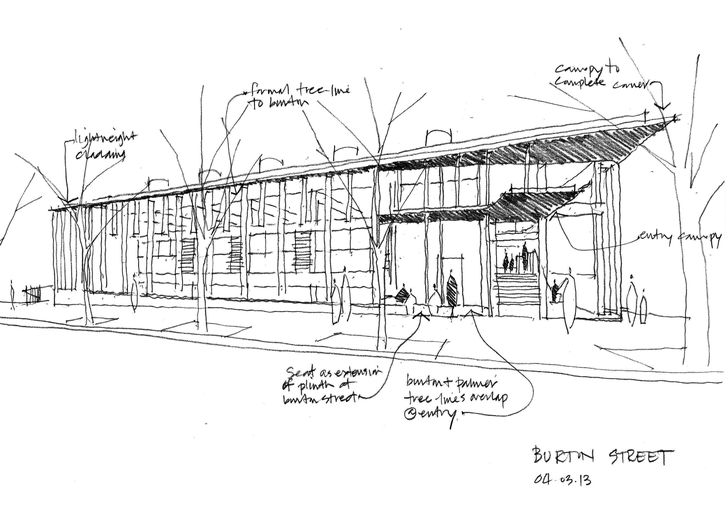 canopy to
complete corner
formal tree-line
to burton
lightweight
cladding
entry canopy
seat as extension
of plinth at
burton street
burton + palmer
tree-lines overlap
@ entry.
BURTON STREET
04.03.13